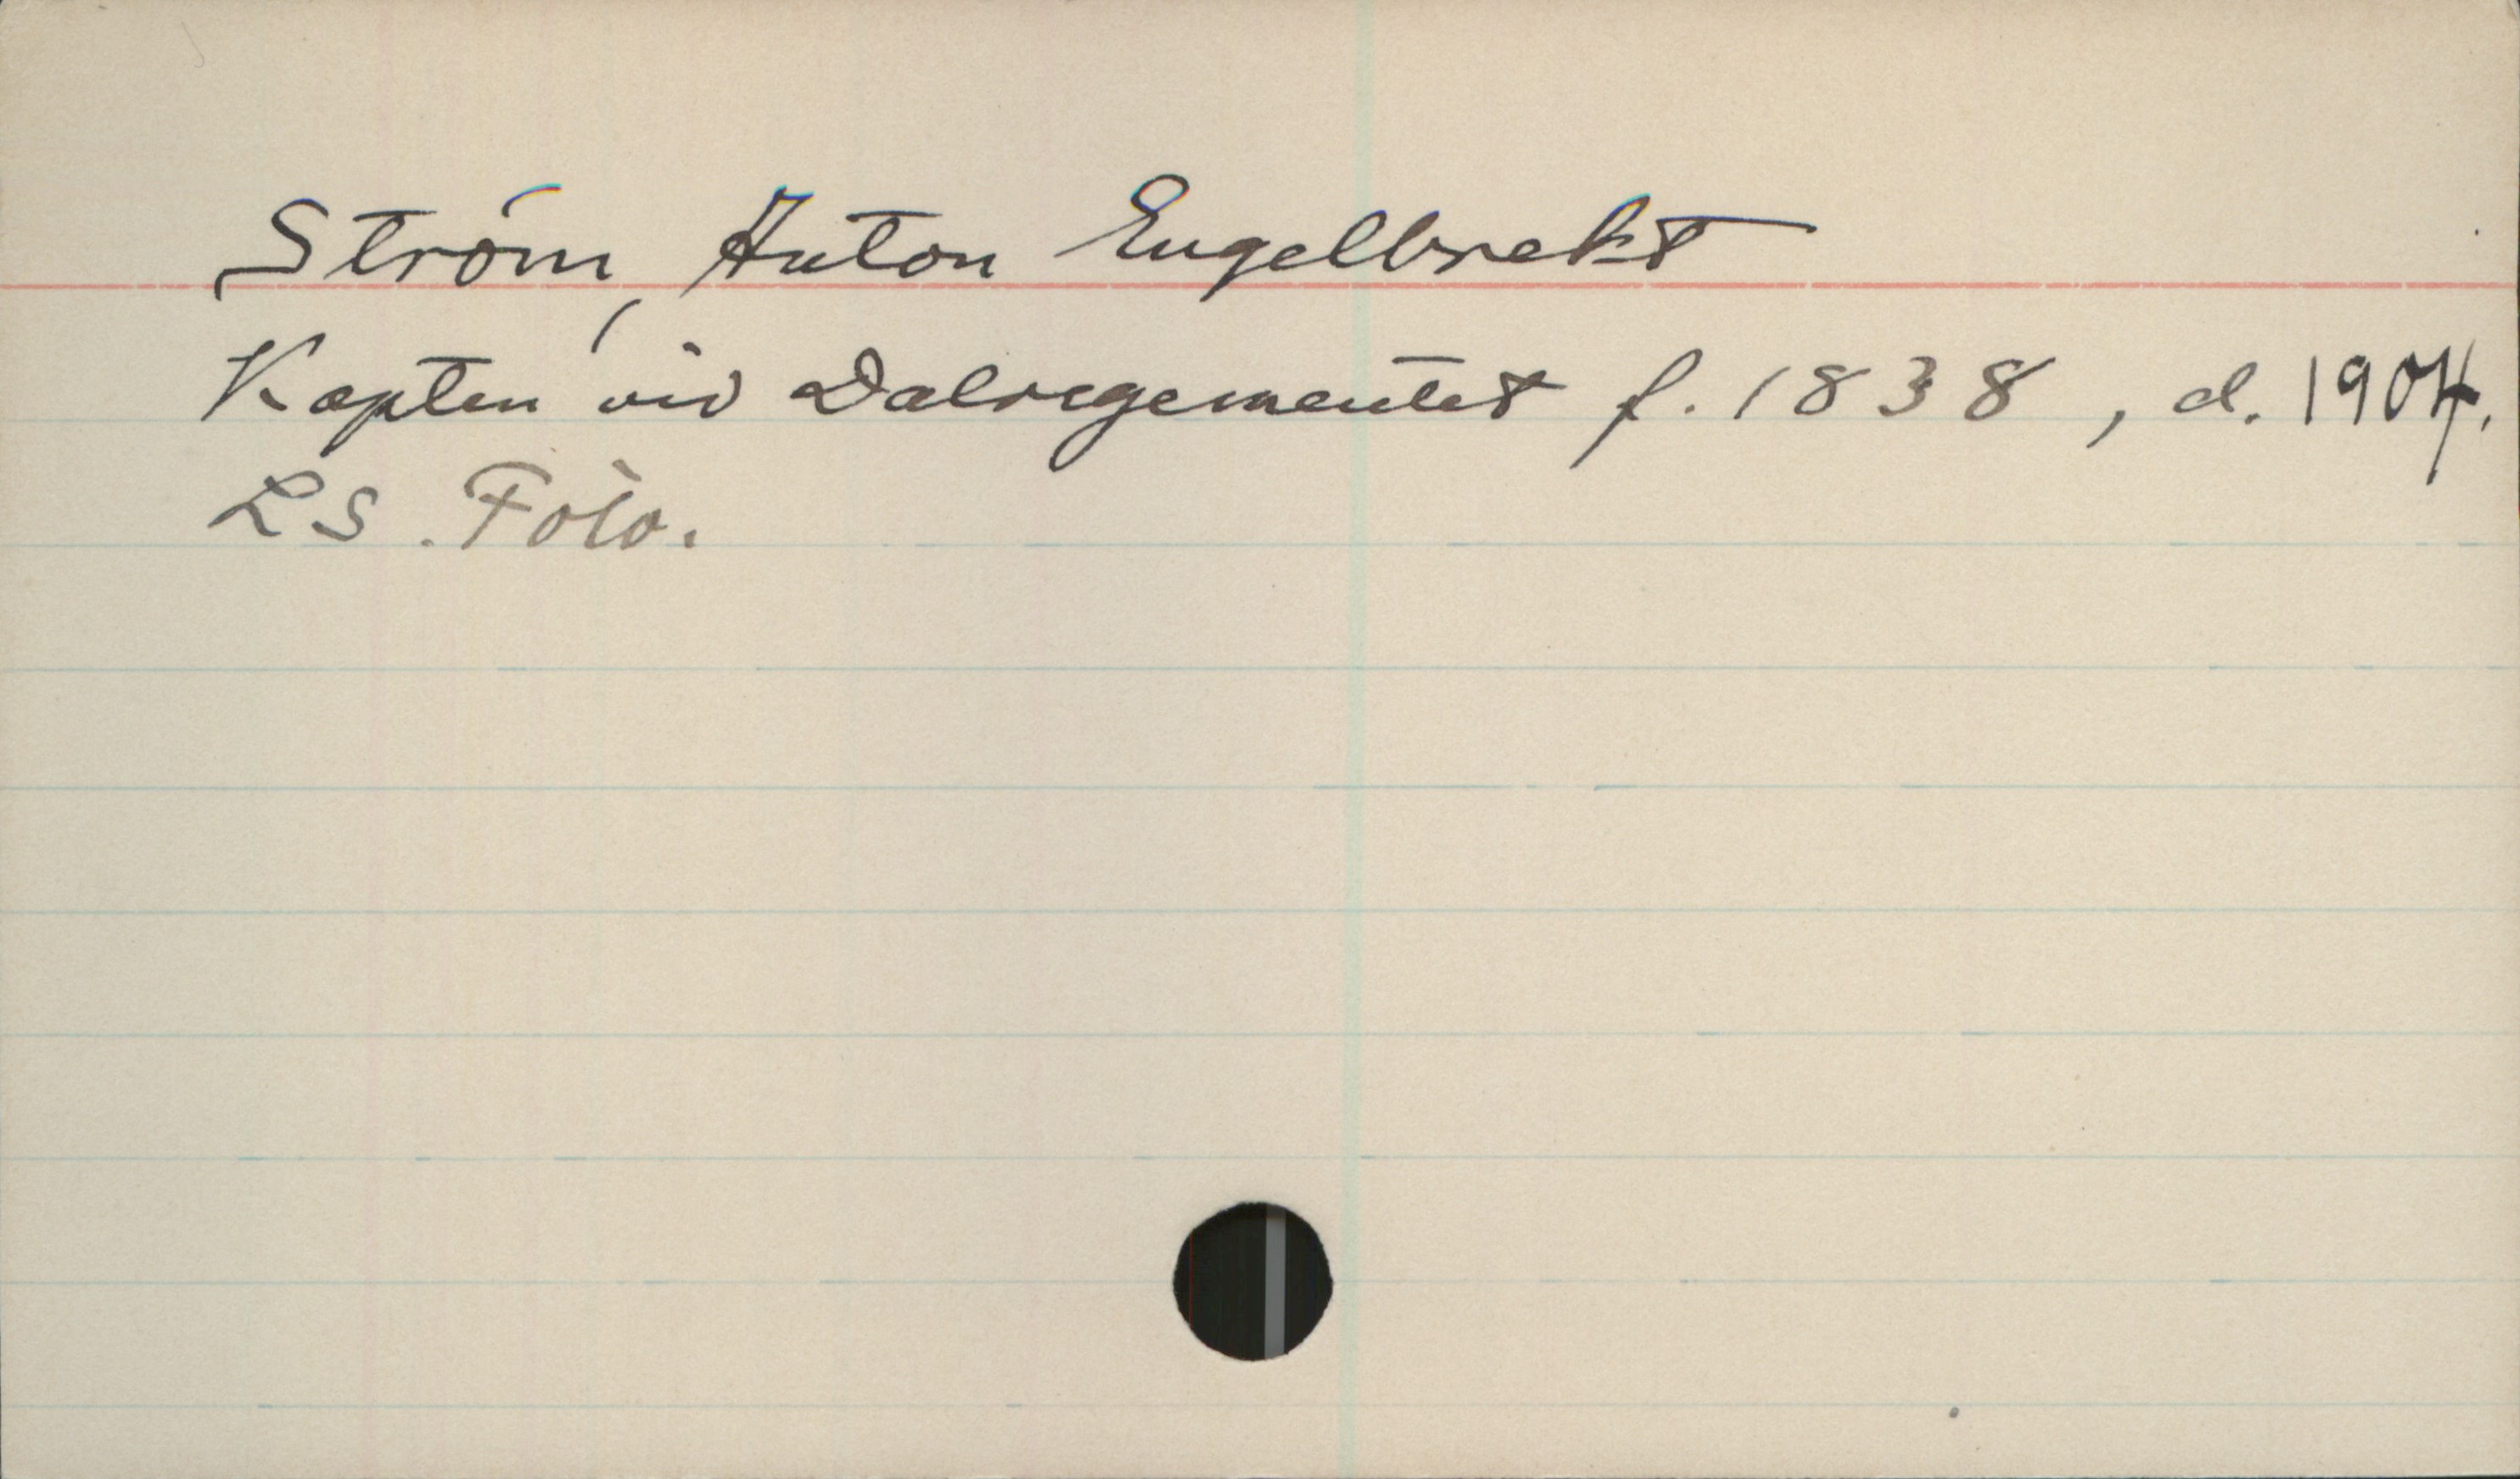 Ström, Anton Engelbrekt
Kapten vid Dalregementet f. 1838, d. 1904.
LS. Foto.